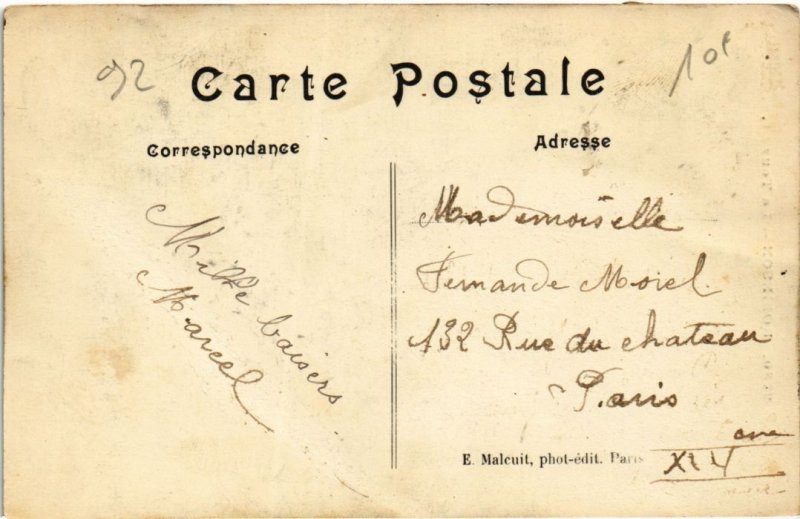 92
10f
Carte Postale
Correspondance
Adresse
Mille baisers
Marcel
Mademoiselle
Fernande Morel
132 Rue du chateau
Paris
E. Malcuit, phot-édit. Paris